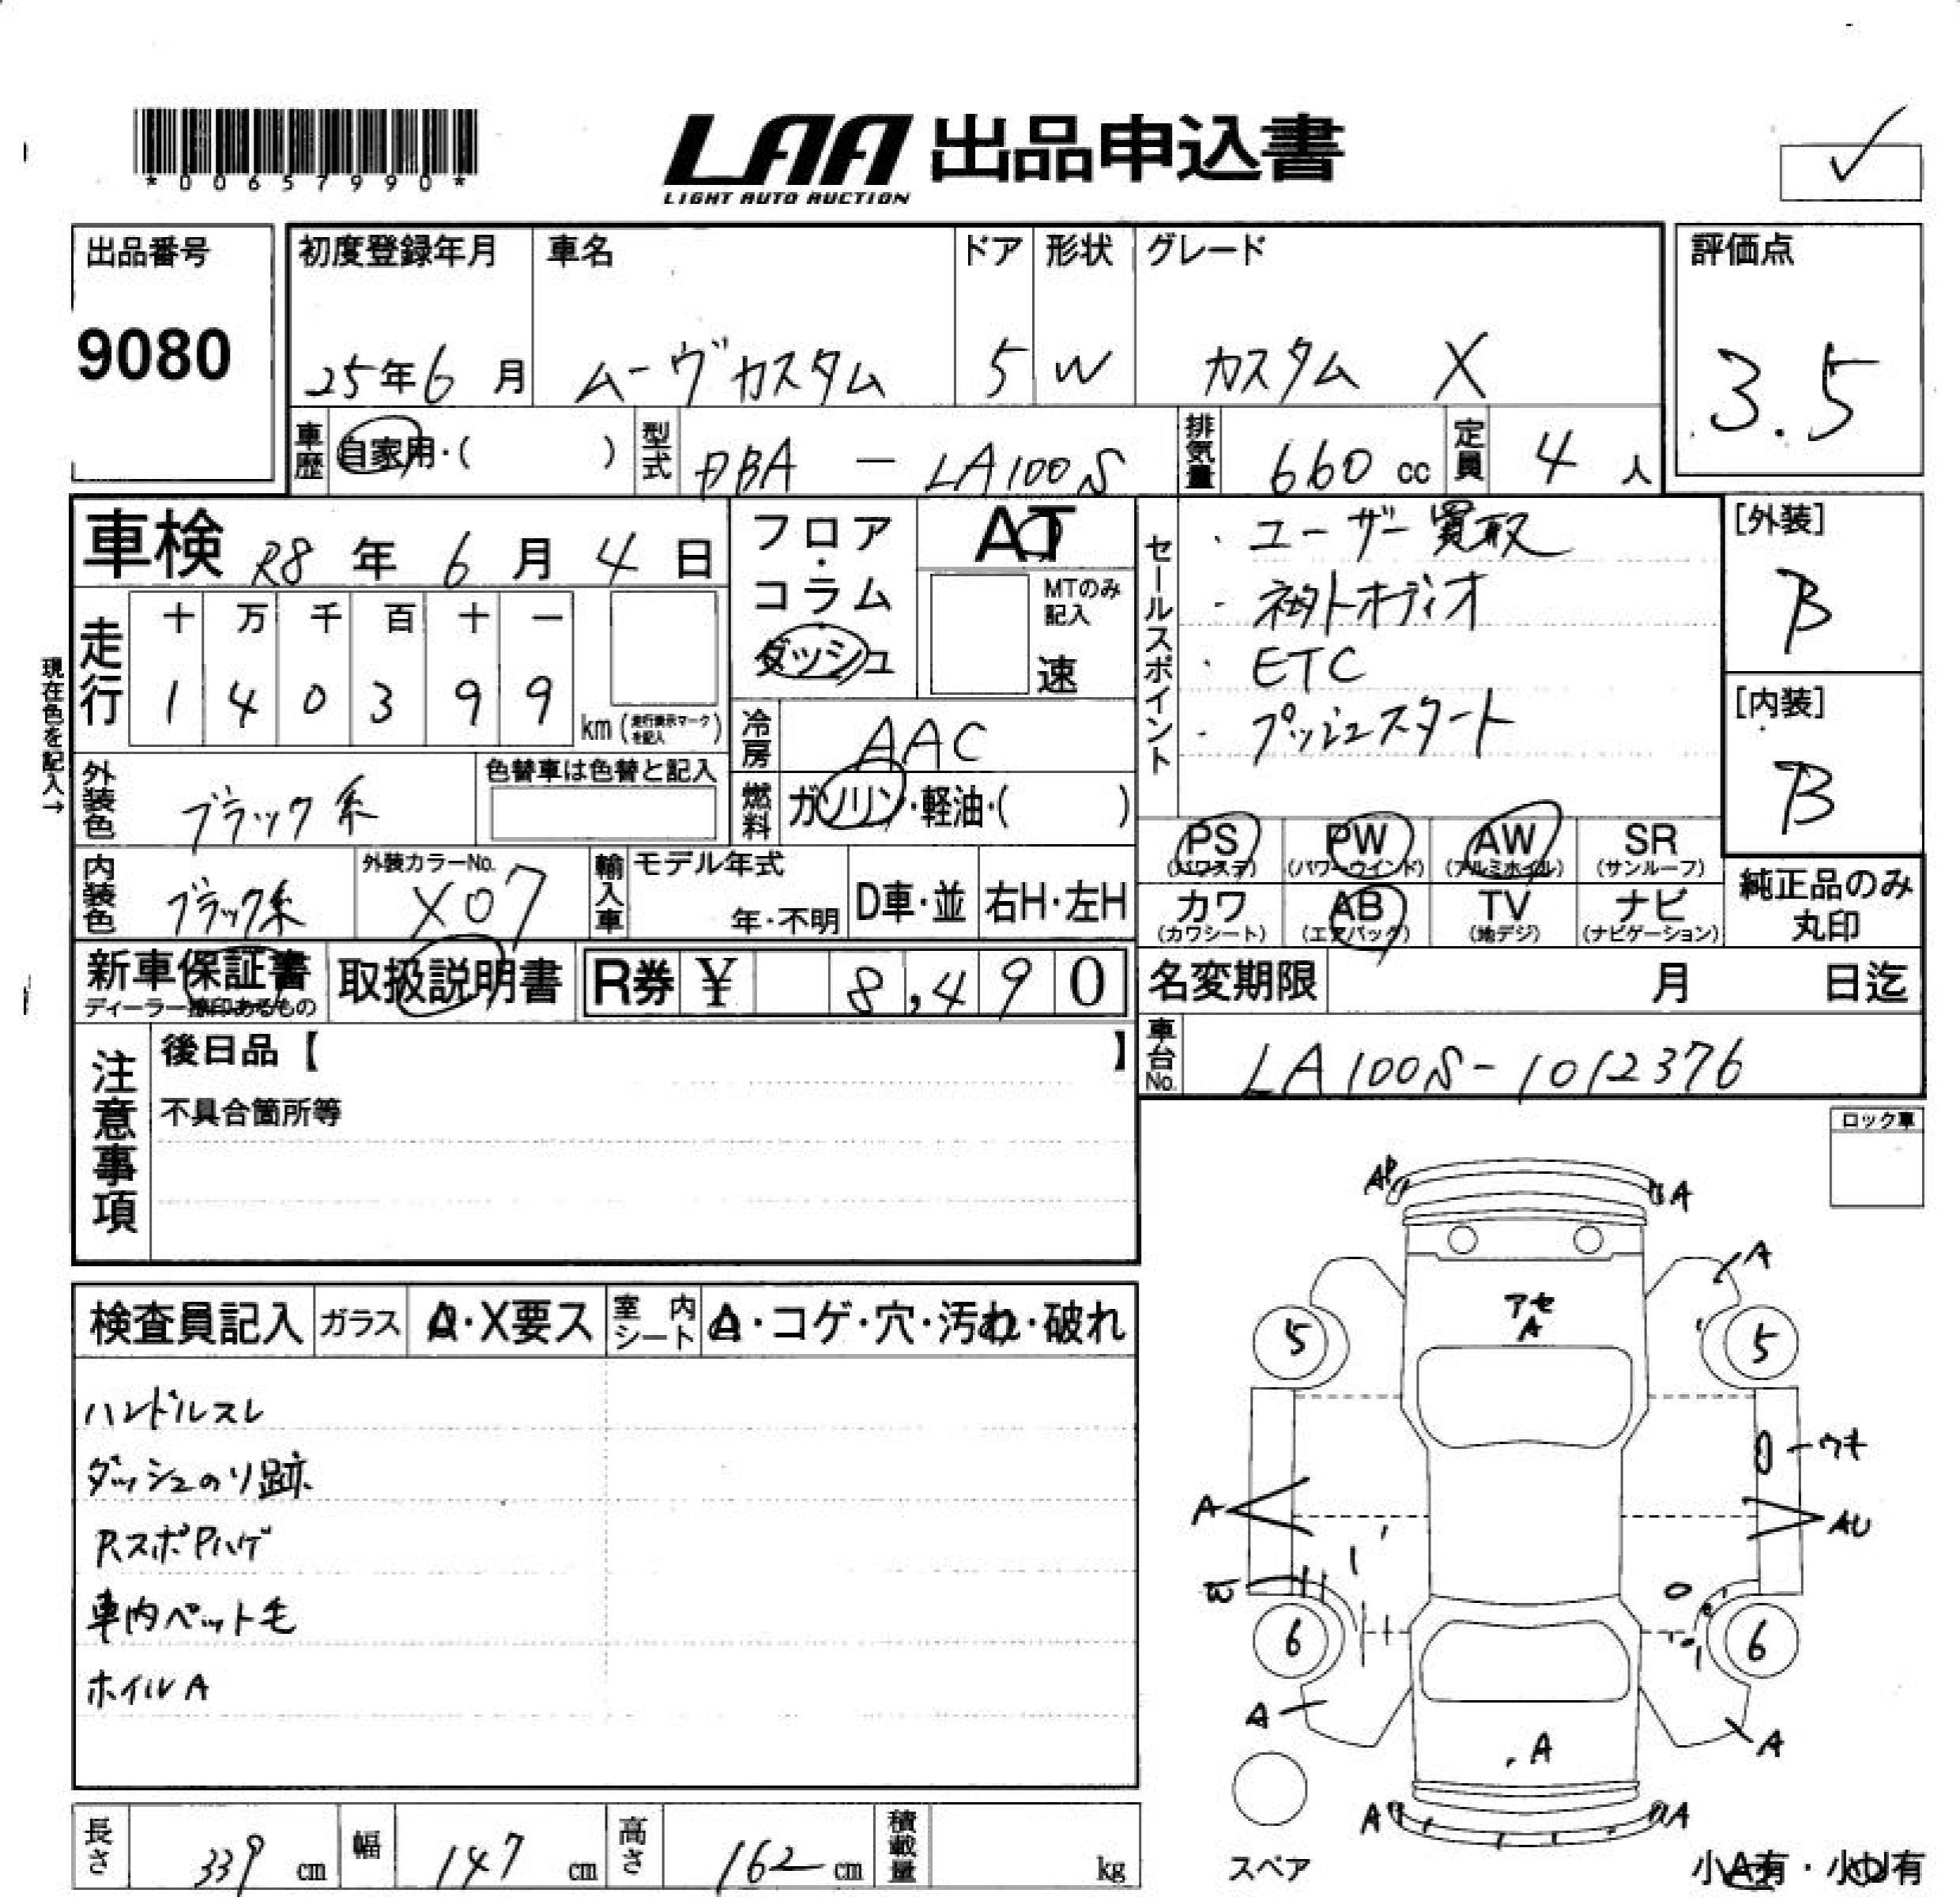 *00657990*
LAA 出品申込書
LIGHT AUTO AUCTION
出品番号
9080
初度登録年月
25年6月
車名
ムーヴカスタム
ドア
5
形状
W
グレード
カスタム X
評価点
3.5
車歴
自家用・( )
型式
DBA - LA100S
排気量
660 cc
定員
4 人
車検 R8年6月4日
フロア・コラム
ダッシュ
AT
MTのみ記入
速
走行
十万千百十一
140399
km (走行表示マークを記入)
現在色を記入→
冷房
AAC
外装色
ブラック系
色替車は色替と記入
燃料
ガソリン・軽油・( )
内装色
ブラック系
外装カラーNo.
X07
輸入車
モデル年式
年・不明
D車・並
右H・左H
セールスポイント
・ユーザー買取
・社外オーディオ
・ETC
・プッシュスタート
[外装]
B
[内装]
B
PS
(パワステ)
PW
(パワーウインド)
AW
(アルミホイル)
SR
(サンルーフ)
カワ
(カワシート)
AB
(エアバック)
TV
(地デジ)
ナビ
(ナビゲーション)
純正品のみ
丸印
新車保証書
ディーラー捺印あるもの
取扱説明書
R券 ¥ 8,490
名変期限 月 日迄
車台No.
LA100S-1012376
注意事項
後日品【 】
不具合箇所等
ロック車
検査員記入
ガラス
A・X要ス
室内シート
A・コゲ・穴・汚れ・破れ
ハンドルスレ
ダッシュのリ跡
RスポPハゲ
車内ペット毛
ホイルA
AP
A
A
アセ
A
5
5
ウキ
A
AU
6
6
A
A
A
A
A
スペア
小A有・小U有
長さ
339 cm
幅
147 cm
高さ
162 cm
積載量
kg